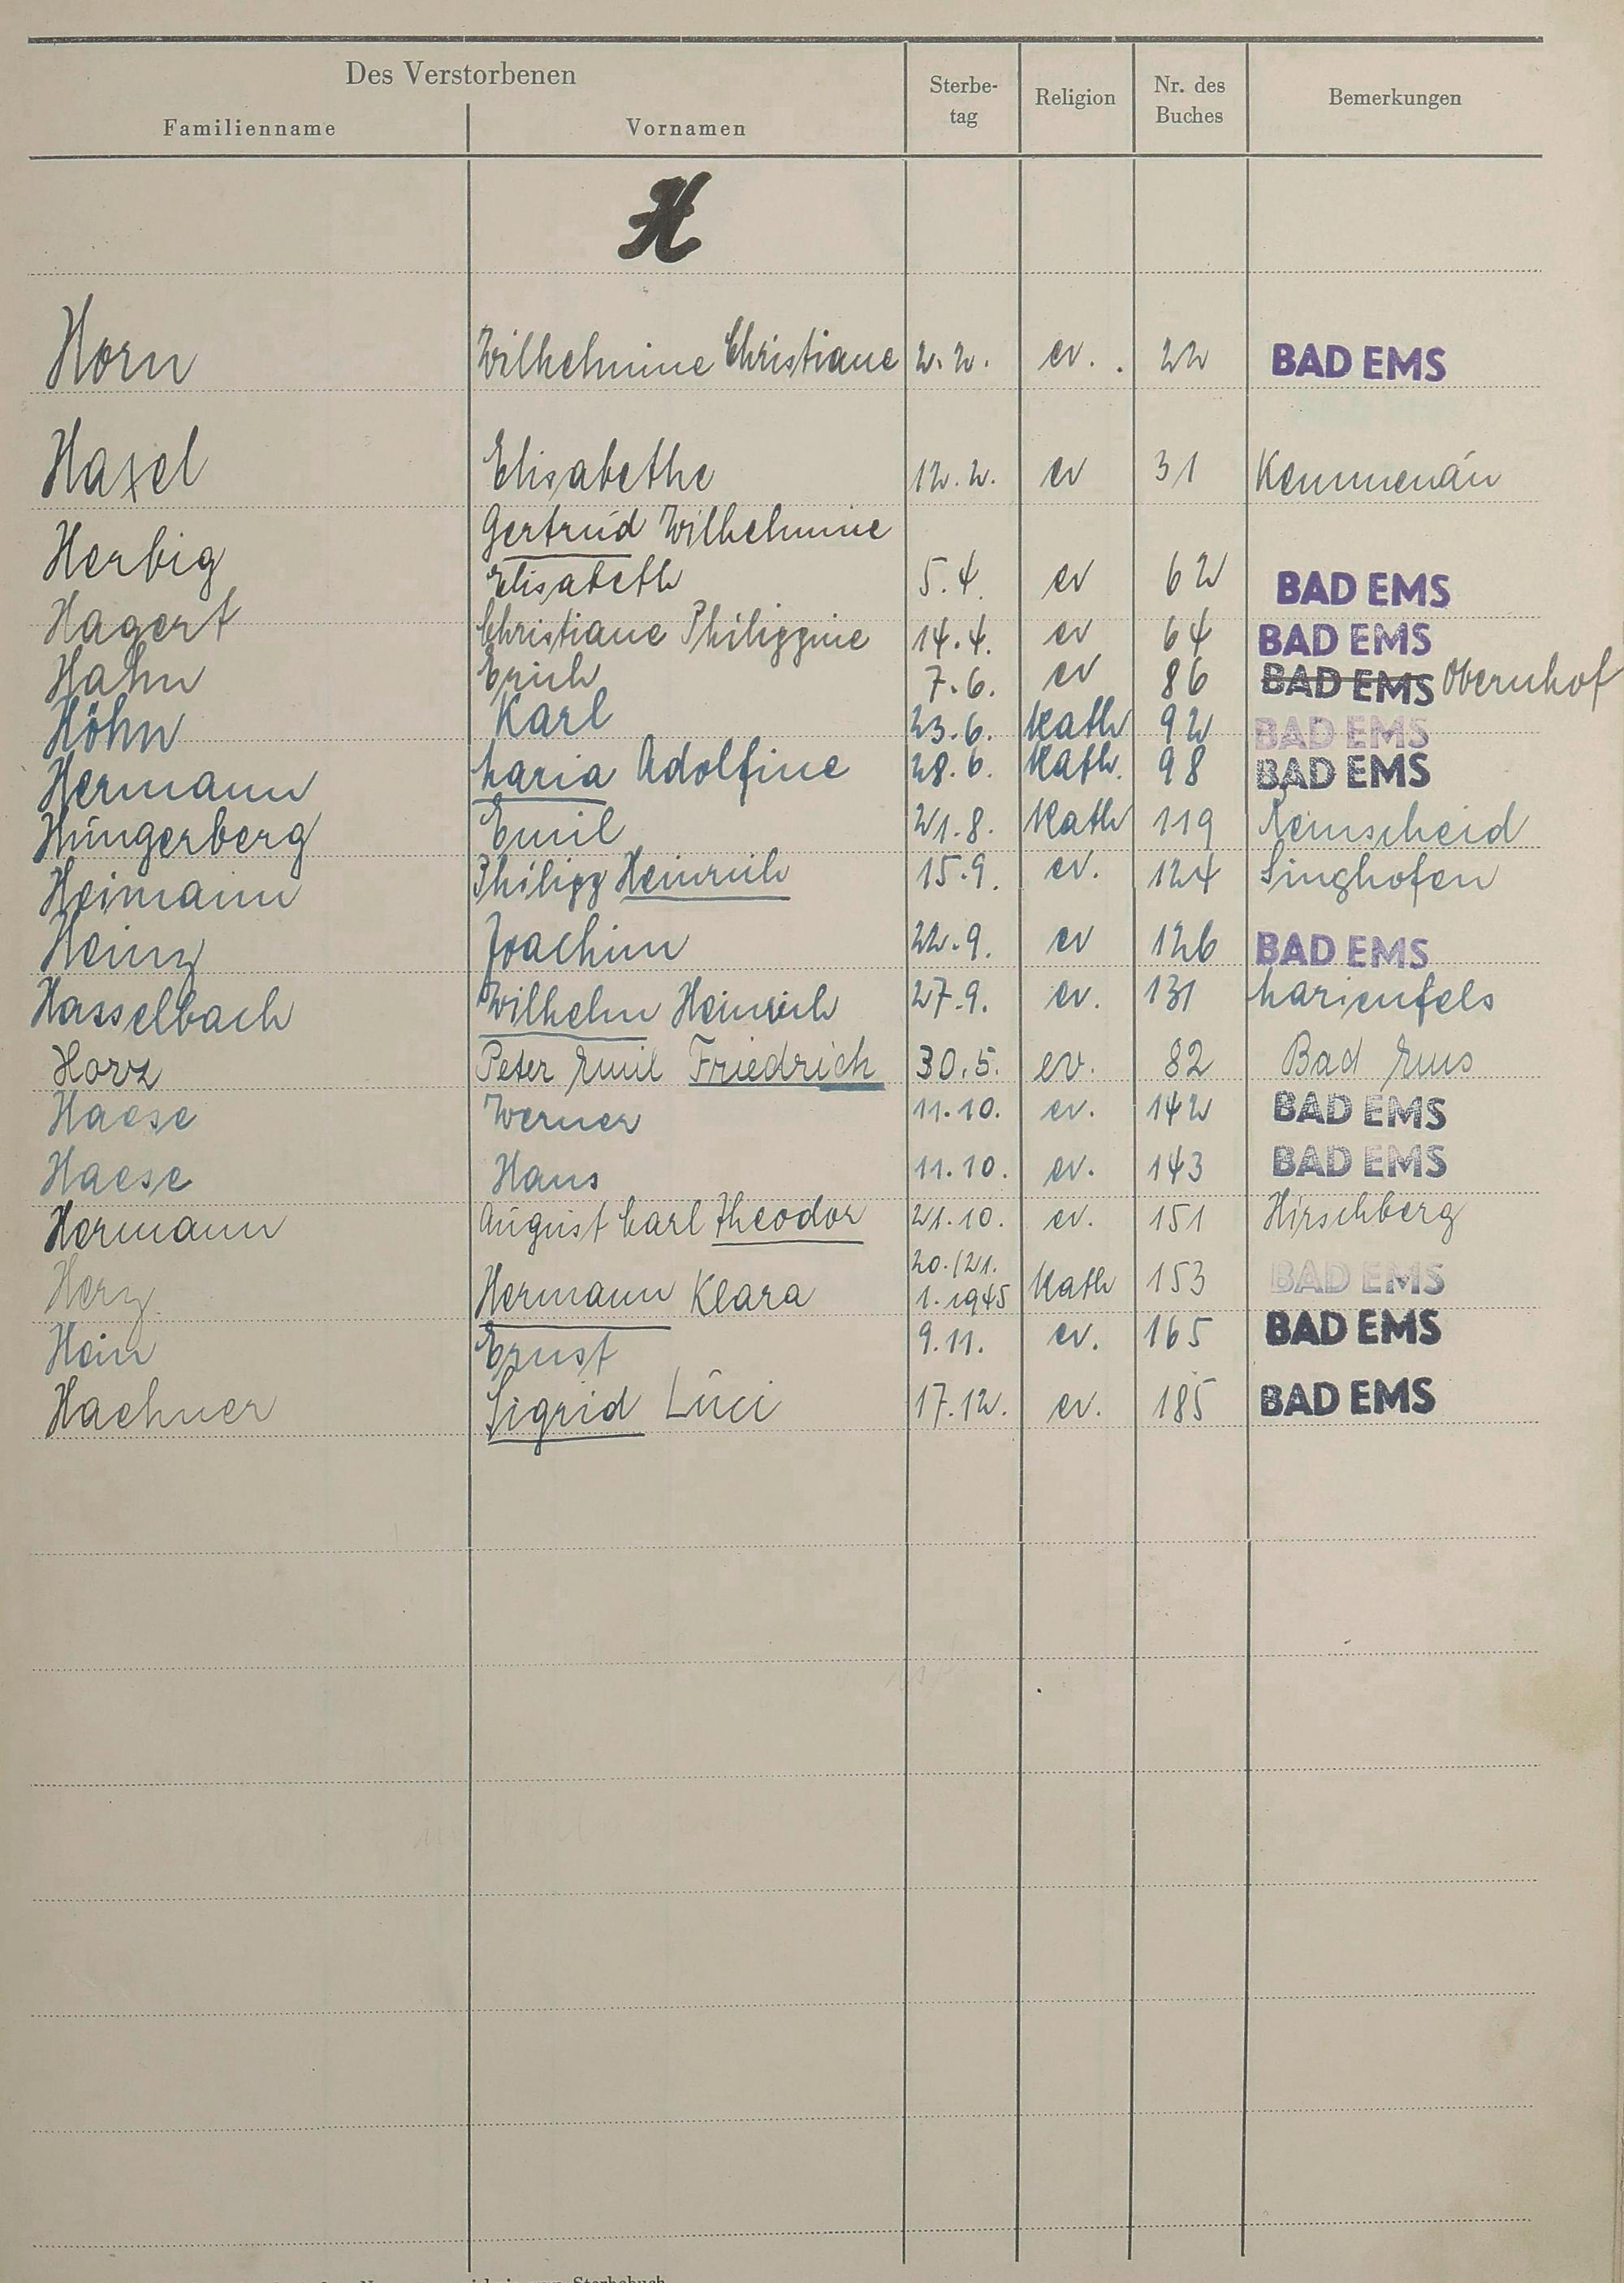 Des Verstorbenen
Familienname Vornamen Sterbe- tag Religion Nr. des Buches Bemerkungen
H
Horn Wilhelmine Christiane 2.2. ev. . 22 BAD EMS
Haxel Elisabethe 12.2. ev 31 Kemmenau
Gertrud Wilhelmine
Herbig Elisabeth 5.4. ev 62 BAD EMS
Hagert Christiane Philippine 14.4. ev 64 BAD EMS
Hahn Erich 7.6. ev 86 BAD EMS Obernhof
Höhn Karl 23.6. Kath 92 BAD EMS
Hermann Maria Adolfine 28.6. Kath. 98 BAD EMS
Hungerberg Emil 21.8. Kath 119 Remscheid
Heimann Philipp Heinrich 15.9. ev. 124 Singhofen
Heinz Joachim 22.9. ev 126 BAD EMS
Hasselbach Wilhelm Heinrich 27.9. ev. 131 Marienfels
Horz Peter Emil Friedrich 30.5. ev. 82 Bad Ems
Haese Werner 11.10. ev. 142 BAD EMS
Haese Hans 11.10. ev. 143 BAD EMS
Hermann August Carl Theodor 21.10. ev. 151 Hirschberg
20./21.
Herz Hermann Klara 1.1945 Kath 153 BAD EMS
Hein Ernst 9.11. ev. 165 BAD EMS
Haehner Sigrid Luci 17.12. ev. 185 BAD EMS
Sterbebuch